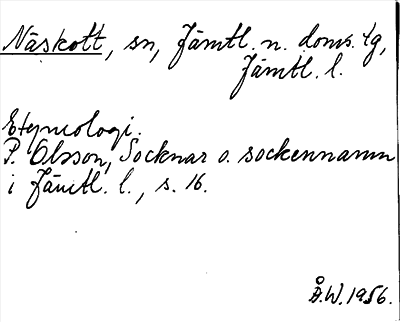 Näskott, sn, Jämtl. n. doms. tg,
Jämtl. l.
Etymologi.
P. Olsson, Socknar o. sockennamn
i Jämtl. l., s. 16.
Å.W. 1956.